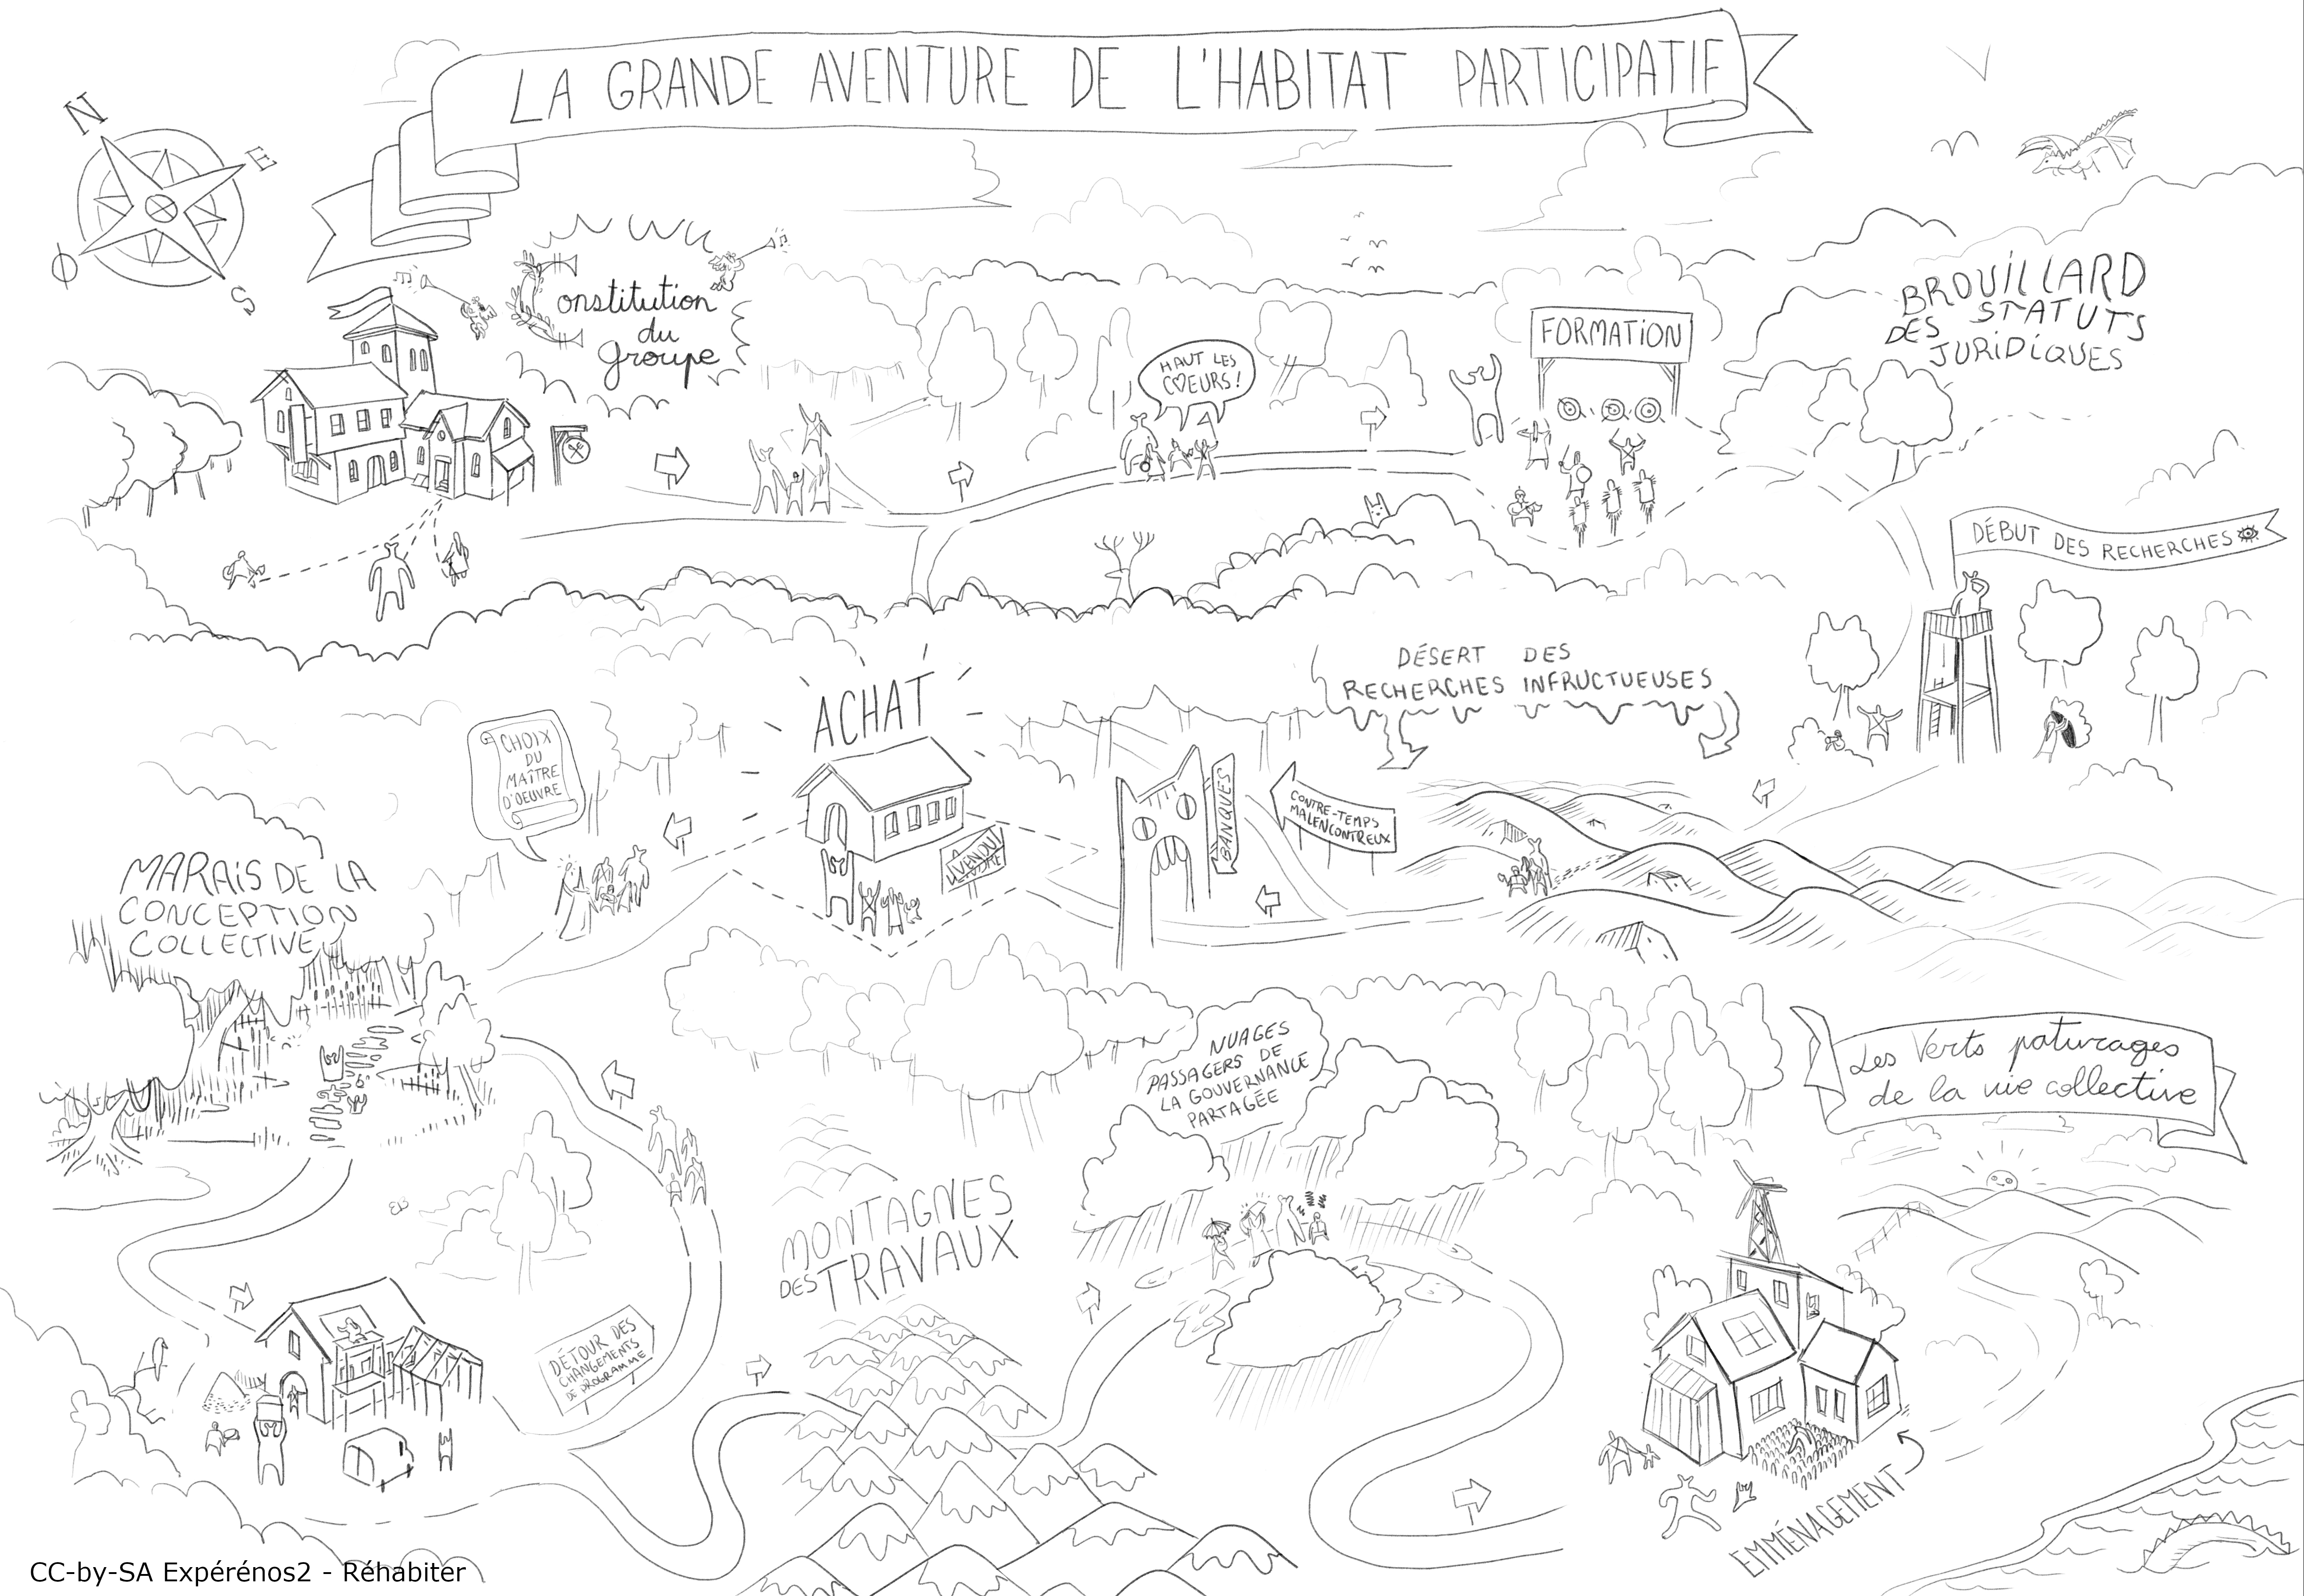 LA GRANDE AVENTURE DE L'HABITAT PARTICIPATIF
N
E
O
S
Constitution
du
groupe
HAUT LES
CŒURS!
FORMATION
BROUILLARD
DES STATUTS
JURIDIQUES
DÉBUT DES RECHERCHES
DÉSERT DES
RECHERCHES INFRUCTUEUSES
CONTRE-TEMPS
MALENCONTREUX
BANQUES
ACHAT
VENDU
CHOIX
DU
MAÎTRE
D'OEUVRE
MARAIS DE LA
CONCEPTION
COLLECTIVE
DÉTOUR DES
CHANGEMENTS
DE PROGRAMME
MONTAGNES
DES TRAVAUX
NUAGES
PASSAGERS DE
LA GOUVERNANCE
PARTAGÉE
Les Verts paturages
de la vie collective
EMMÉNAGEMENT
CC-by-SA Expérénos2 - Réhabiter